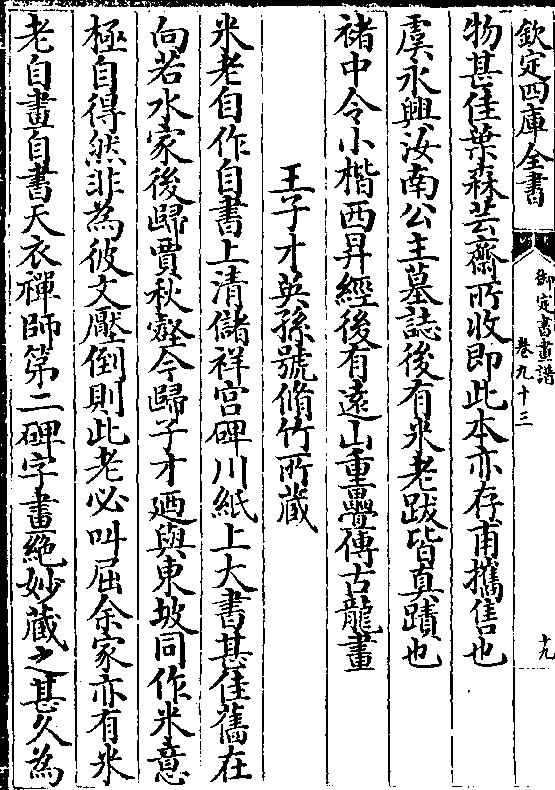 欽定四庫全書
御定書畫譜
卷九十三
十九
物甚佳葉森芸齋所收即此本亦存甫攜售也
虞永興汝南公主墓誌後有米老跋皆真蹟也
褚中令小楷西昇經後有遠山重疊傳古龍畫
王子才英孫號脩竹所藏
米老自作自書上清儲祥宫碑川紙上大書甚佳舊在
向若水家後歸賈秋壑今歸子才廼與東坡同作米意
極自得然非為彼文壓倒則此老必叫屈余家亦有米
老自畫自書天衣禪師第二碑字畫絶妙藏之甚久為